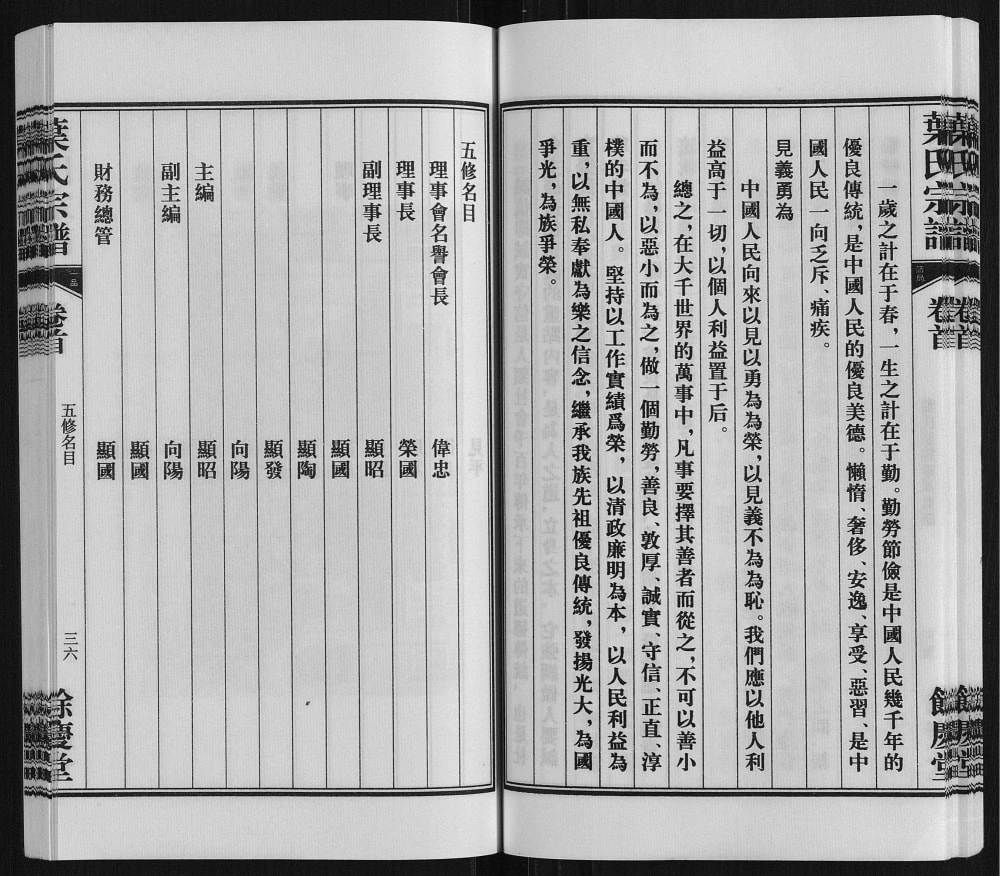 葉氏宗譜
卷首
餘慶堂
一歲之計在于春，一生之計在于勤。勤勞節儉是中國人民幾千年的
優良傳統，是中國人民的優良美德。懶惰、奢侈、安逸、享受、惡習、是中
國人民一向乏斥、痛疾。
見義勇為
中國人民向來以見以勇為為榮，以見義不為為恥。我們應以他人利
益高于一切，以個人利益置于后。
總之，在大千世界的萬事中，凡事要擇其善者而從之，不可以善小
而不為，以惡小而為之，做一個勤勞，善良、敦厚、誠實、守信、正直、淳
樸的中國人。堅持以工作實績爲榮，以清政廉明為本，以人民利益為
重，以無私奉獻為樂之信念，繼承我族先祖優良傳統，發揚光大，為國
爭光，為族爭榮。
五修名目
理事會名譽會長 偉忠
理事長 榮國
副理事長 顯昭
顯國
顯陶
顯發
向陽
主編 顯昭
副主編 向陽
顯國
財務總管 顯國
葉氏宗譜
卷首
五修名目
三六
餘慶堂